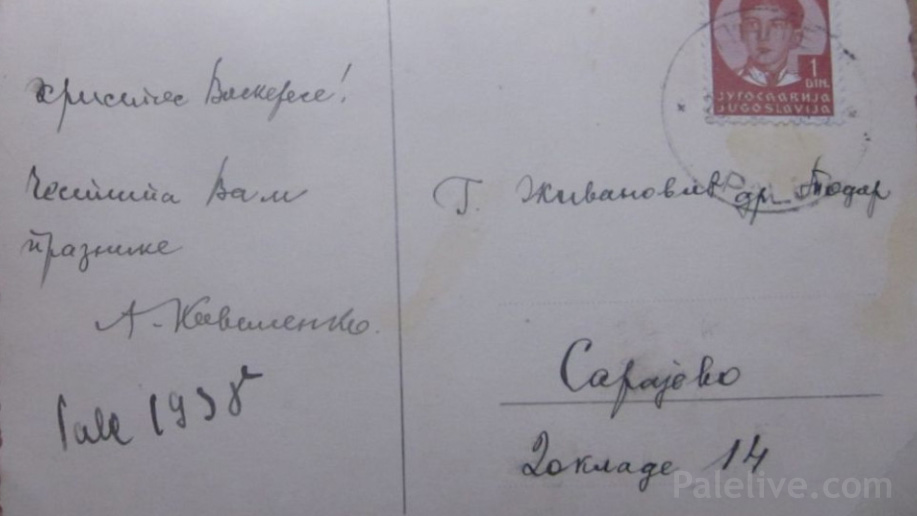 Христос Васкресе!
Честита Вам
празнике
А. Коваленко.
Pale 1938 г
1
DIN.
ЈУГОСЛАВИЈА
JUGOSLAVIJA
Г. Живановић др. Тодар
Сарајево
Докладе 14
Palelive.com